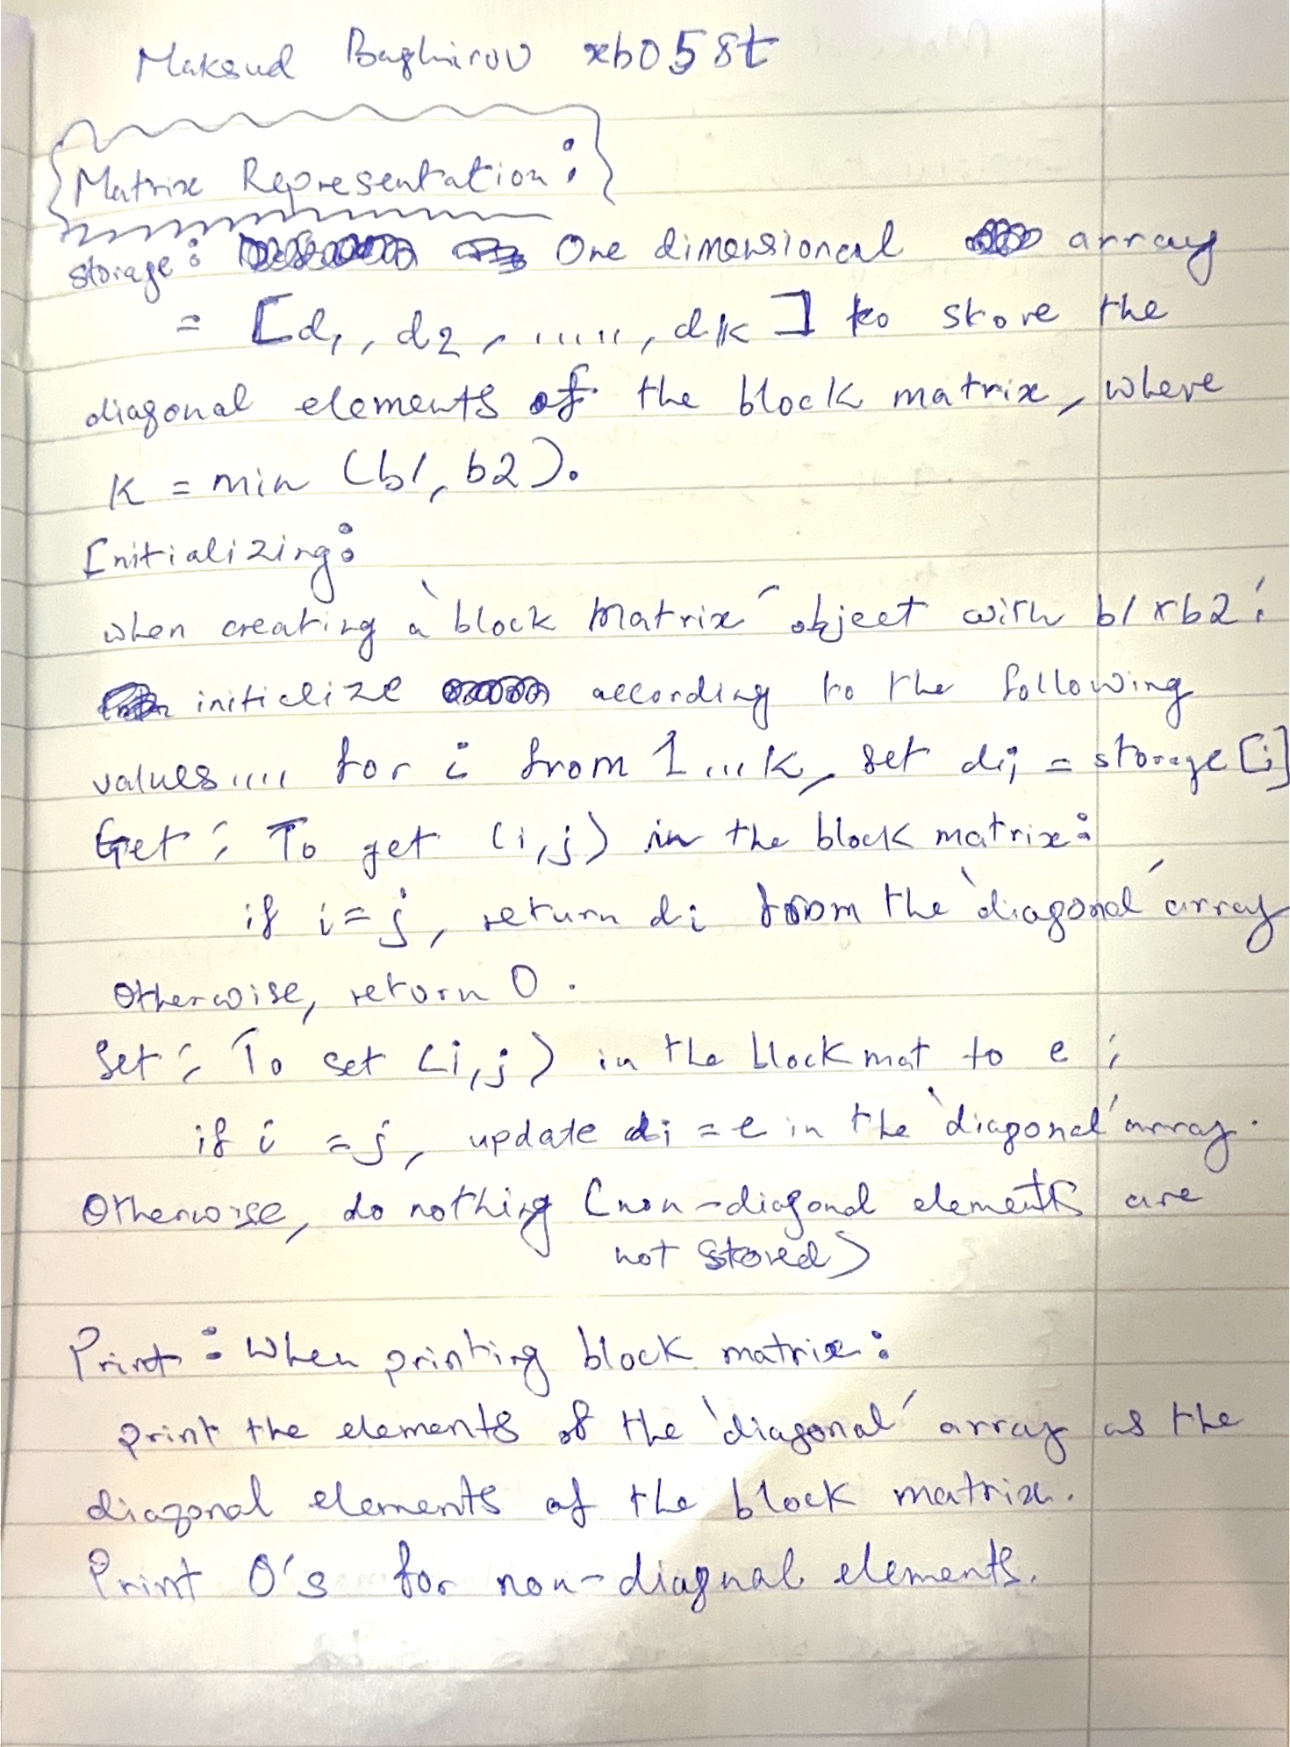 Maksud Baghirov xb058t
Matrix Representation:
storage: One dimensional array
= [d1, d2, ....., dk] to store the
diagonal elements of the block matrix, where
K = min (b1, b2).
Initializing:
when creating a `block Matrix´ object with b1xb2:
initialize according to the following
values.... for i from 1...K, set di; = storage[i]
Get: To get (i,j) in the block matrix:
if i=j, return di from the `diagonal´ array
Otherwise, return 0.
Set: To set (i,j) in the block mat to e:
if i =j, update di = e in the `diagonal´ array.
Otherwise, do nothing (non-diagonal elements are
not stored)
Print: When printing block matrix:
print the elements of the `diagonal´ array as the
diagonal elements of the block matrix.
Print 0's for non-diagnal elements.